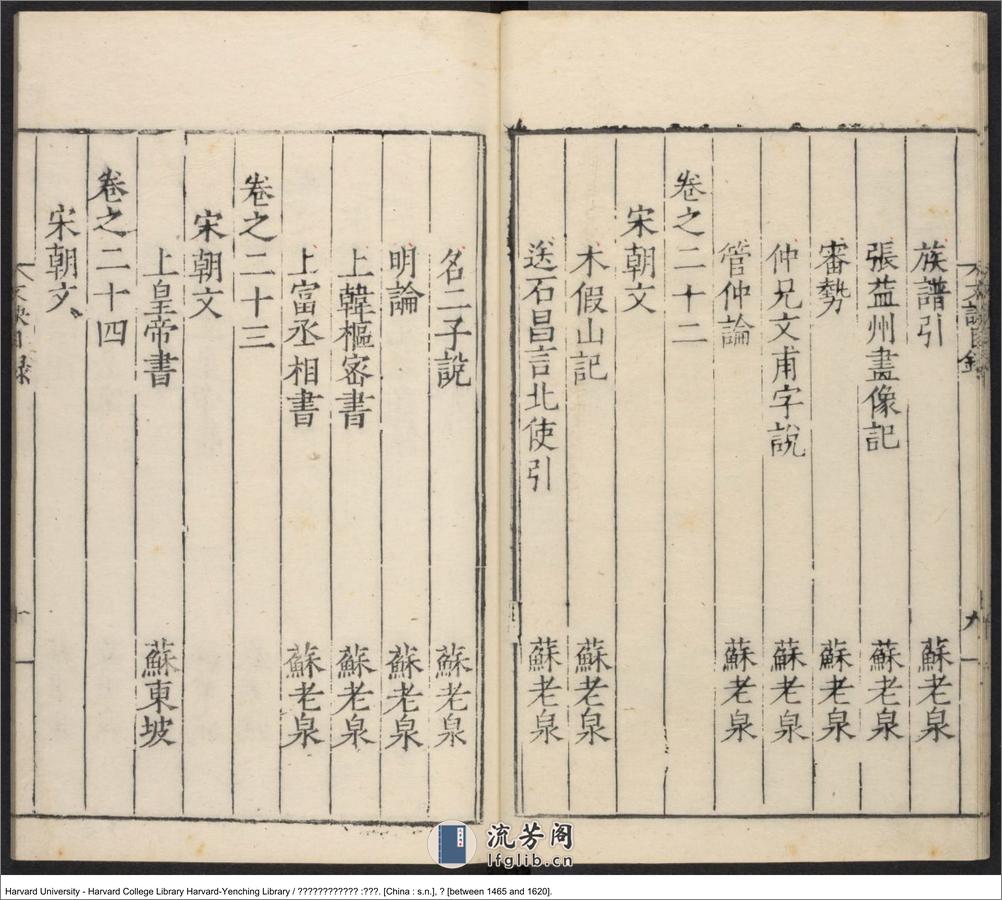 族譜引 蘇老泉
張益州畫像記 蘇老泉
審勢 蘇老泉
仲兄文甫字說 蘇老泉
管仲論 蘇老泉
卷之二十二
宋朝文
木假山記 蘇老泉
送石昌言北使引 蘇老泉
名二子說 蘇老泉
明論 蘇老泉
上韓樞密書 蘇老泉
上富丞相書 蘇老泉
卷之二十三
宋朝文
上皇帝書 蘇東坡
卷之二十四
宋朝文
流芳阁
lfglib.cn
Harvard University - Harvard College Library Harvard-Yenching Library / ???????????? :???. [China : s.n.], ? [between 1465 and 1620].